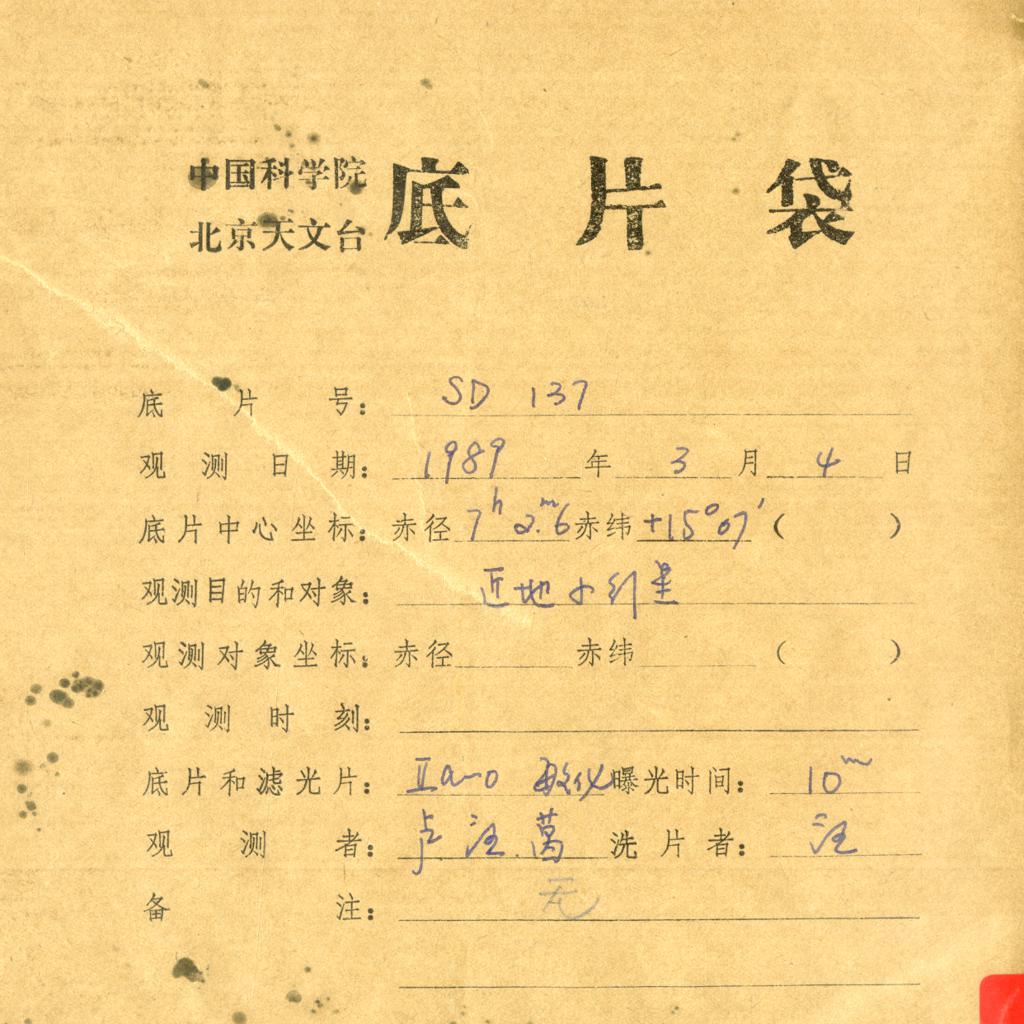 中国科学院
北京天文台
底片袋
底片号: SD 137
观测日期: 1989年3月4日
底片中心坐标: 赤径 7h 2m.6 赤纬 +15°07′ ( )
观测目的和对象: 近地小行星
观测对象坐标: 赤径 赤纬 ( )
观测时刻:
底片和滤光片: IIa-o 敏化 曝光时间: 10m
观测者: 卢 汪 葛 洗片者: 汪
备注: 无